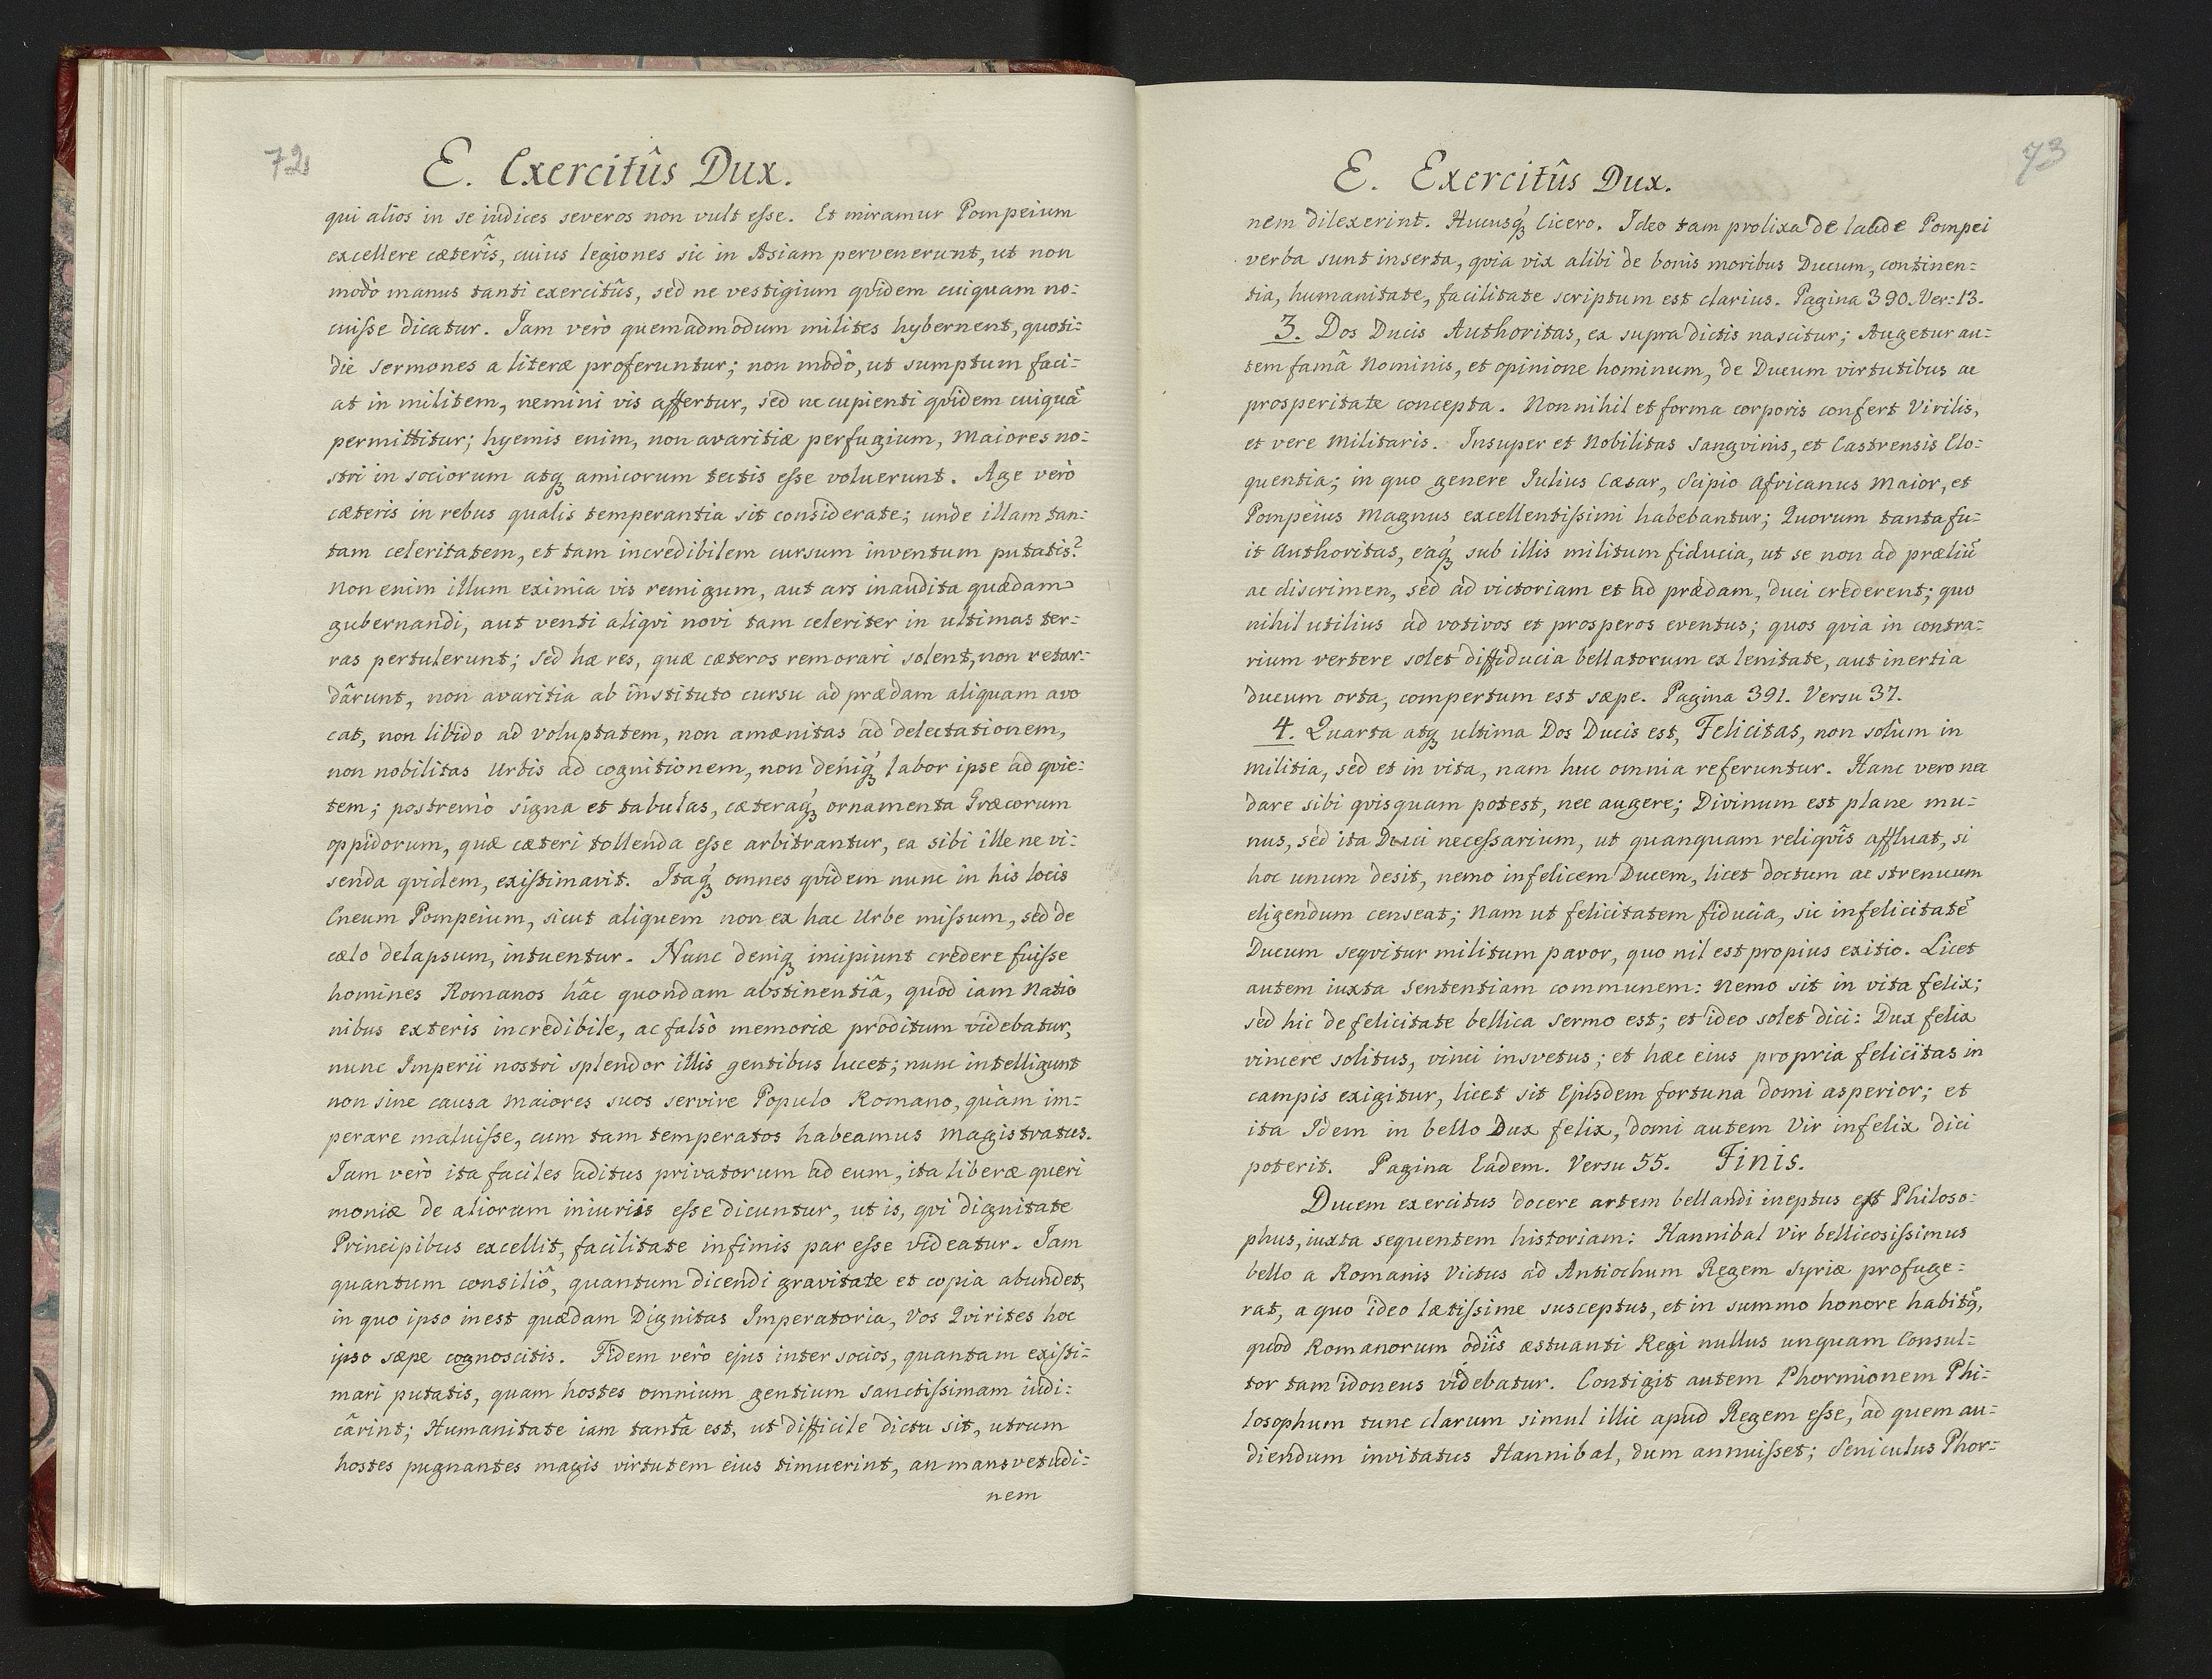 72
E. Exercitûs Dux.
qui alios in se iudices severos non vult esse. Et miramur Pompeium
excellere cæterîs, cuius legiones sic in Asiam pervenerunt, ut non
modò manus tanti exercitûs, sed ne vestigium qvidem cuiquam no=
cuisse dicatur. Iam verò quemadmodum milites hybernent, quoti=
die sermones a literæ proferuntur; non modò, ut sumptum faci=
at in militem, nemini vis affertur, sed ne cupienti qvidem cuiquã
permittitur; hyemis enim, non avaritiæ perfugium, Maiores no=
stri in sociorum atqꝫ amicorum tectis esse voluerunt. Age verò
cæteris in rebus qualis temperantia sit considerate; unde illam tan=
tam celeritatem, et tam incredibilem cursum inventum putatis?
Non enim illum eximia vis remigum, aut ars inaudita quædam
gubernandi, aut venti aliqvi novi tam celeriter in ultimas ter=
ras pertulerunt; sed hæ res, quæ cæteros remorari solent, non retar=
dârunt, non avaritia ab instituto cursu ad prædam aliquam avo
cat, non libido ad voluptatem, non amænitas ad delectationem,
non nobilitas Urbis ad cognitionem, non deniqꝫ labor ipse ad qvie=
tem; postremò signa et tabulas, cæteraqꝫ ornamenta Græcorum
oppidorum, quæ cæteri tollenda esse arbitrantur, ea sibi ille ne vi=
senda qvidem, existimavit. Itaqꝫ omnes qvidem nunc in his locis
Cneum Pompeium, sicut aliquem non ex hac Urbe missum, sed de
cælo delapsum, intuentur. Nunc deniqꝫ incipiunt credere fuisse
homines Romanos hâc quondam abstinentiâ, quod iam Natio
nibus exteris incredibile, ac falsò memoriæ proditum videbatur,
nunc Imperii nostri splendor illis gentibus lucet; nunc intelligunt
non sine causa Maiores suos servire Populo Romano, quàm im=
perare maluisse, cum tam temperatos habeamus Magistratus.
Iam verò ita faciles aditus privatorum ad eum, ita liberæ queri
moniæ de aliorum iniuriis esse dicuntur, ut is, qvi dignitate
Principibus excellit, facilitate infimis par esse videatur. Iam
quantum consiliô, quantum dicendi gravitate et copia abundet,
in quo ipso inest quædam Dignitas Imperatoria, Vos Qvirites hoc
ipso sæpe cognoscitis. Fidem verò ejus inter socios, quantam existi=
mari putatis, quam hostes omnium gentium sanctissimam iudi=
cârint; Humanitate iam tantâ est, ut difficile dictu sit, utrum
hostes pugnantes magis virtutem eius timuerint, an mansvetudi=
nem
73
E. Exercitûs Dux.
nem dilexerint. Hucusqꝫ Cicero. Ideo tam prolixa de laude Pompei
verba sunt inserta, qvia vix alibi de bonis moribus Ducum, continen=
tia, humanitate, facilitate scriptum est clarius. Pagina 390. Ver: 13.
3. Dos Ducis Authoritas, ex supra dictis nascitur; Augetur au=
tem famâ Nominis, et opinione hominum, de Ducum virtutibus ac
prosperitate concepta. Nonnihil et forma corporis confert Virilis,
et vere Militaris. Insuper et Nobilitas Sangvinis, et Castrensis Elo=
quentia; in quo genere Iulius Cæsar, Scipio Africanus Maior, et
Pompeius Magnus excellentissimi habebantur; Quorum tanta fu=
it Authoritas, eaqꝫ sub illis militum fiducia, ut se non ad præliũ
ac discrimen, sed ad victoriam et ad prædam, duci crederent; quo
nihil utilius ad votivos et prosperos eventus; quos qvia in contra=
rium vertere solet diffiducia bellatorum ex lenitate, aut inertia
ducum orta, compertum est sæpe. Pagina 391. Versu 37.
4. Quarta atqꝫ ultima Dos Ducis est, Felicitas, non solùm in
Militia, sed et in vita, nam huc omnia referuntur. Hanc vero nec
dare sibi qvisquam potest, nec augere; Divinum est plane mu=
nus, sed ita Duci necessarium, ut quanquam reliqvîs affluat, si
hoc unum desit, nemo infelicem Ducem, licet doctum ac strenuum
eligendum censeat; Nam ut felicitatem fiducia, sic infelicitatẽ
Ducum seqvitur militum pavor, quo nil est propius exitio. Licet
autem iuxta sententiam communem: Nemo sit in vita felix;
sed hic de felicitate bellica sermo est; et ideo solet dici: Dux felix
vincere solitus, vinci insvetus; et hæc eius propria felicitas in
campis exigitur, licet sit Ejusdem fortuna domi asperior; et
ita Idem in bello Dux felix, domi autem Vir infelix dici
poterit. Pagina Eadem. Versu 55. Finis.
Ducem exercitus docere artem bellandi ineptus est Philoso=
phus, iuxta sequentem historiam: Hannibal Vir bellicosissimus
bello a Romanis Victus ad Antiochum Regem Syriæ profuge=
rat, a quo ideo lætissime susceptus, et in summo honore habitꝰ,
quod Romanorum odiîs æstuanti Regi nullus unquam Consul=
tor tam idoneus videbatur. Contigit autem Phormionem Phi=
losophum tunc clarum simul illic apud Regem esse, ad quem au=
diendum invitatus Hannibal, dum annuisset; Seniculus Phor=